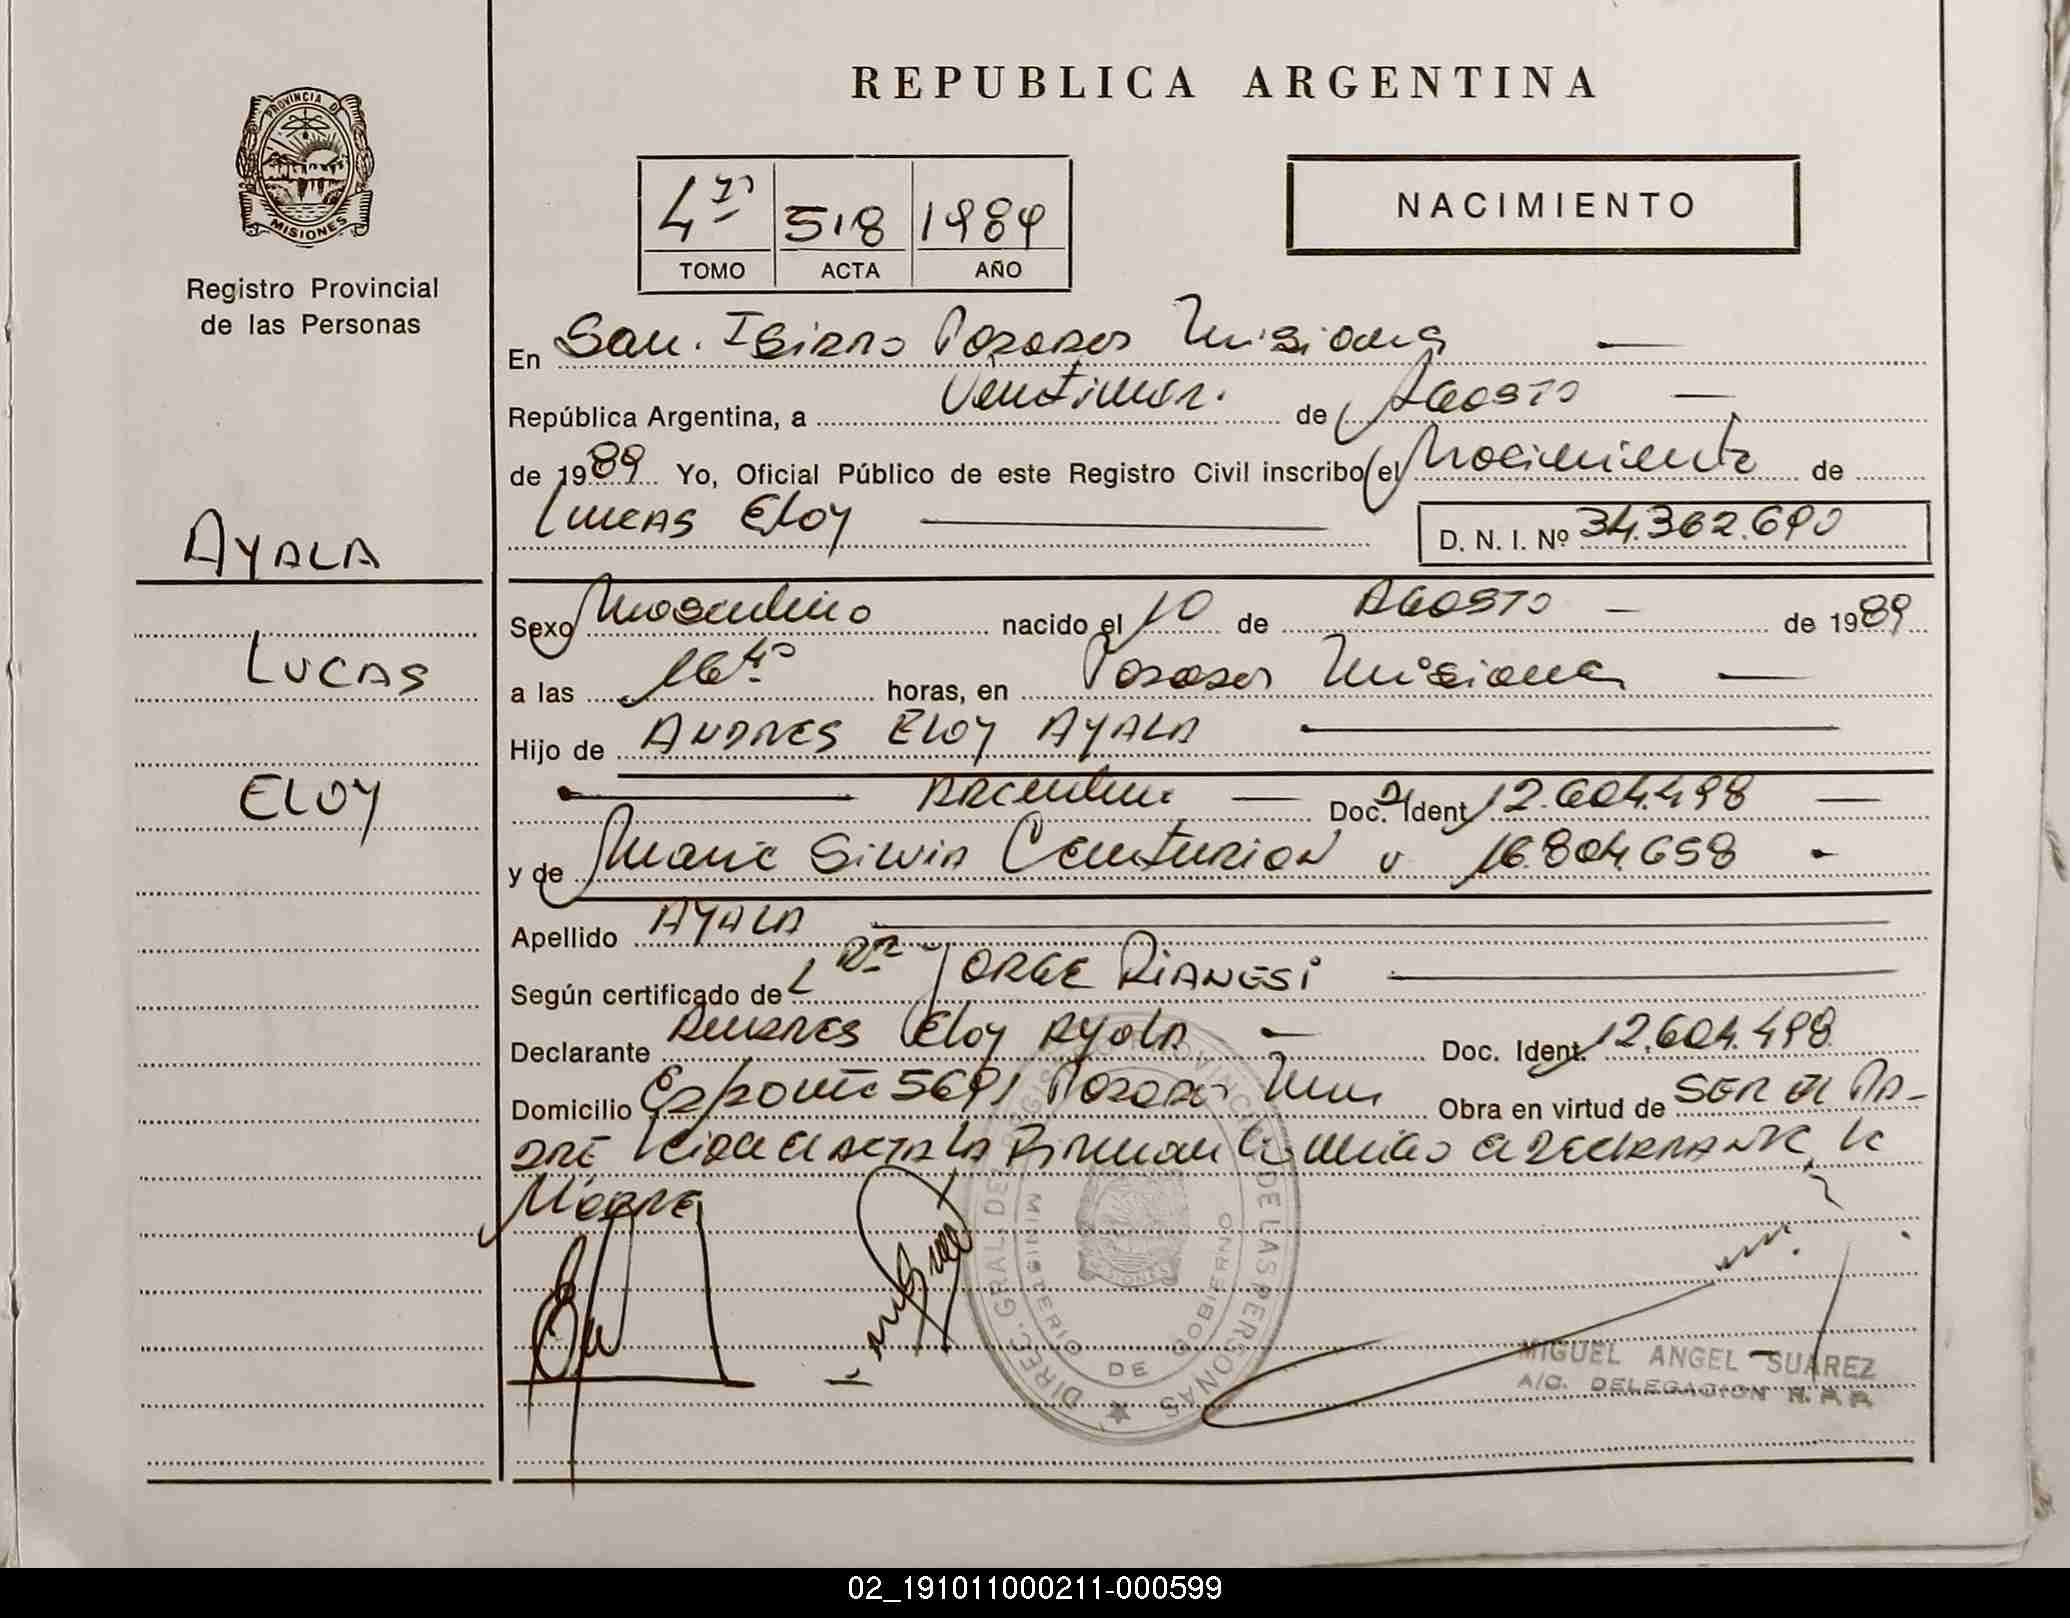 REPUBLICA ARGENTINA
PROVINCIA DE
MISIONES
Registro Provincial
de las Personas
4º 518 1989
TOMO ACTA AÑO
NACIMIENTO
En San Isidro Posadas Misiones
República Argentina, a Veintinueve de Agosto
de 1989 Yo, Oficial Público de este Registro Civil inscribo el Nacimiento de
Lucas Eloy
D. N. I. Nº 34.362.690
AYALA
LUCAS
ELOY
Sexo Masculino nacido el 10 de Agosto de 1989
a las 16 hs horas, en Posadas Misiones
Hijo de Andres Eloy Ayala
Argentino Doc. Ident 12.604.498
y de Maria Silvia Centurion 16.804.658
Apellido Ayala
Según certificado de Jorge
Declarante Andres Eloy Ayala Doc. Ident. 12.604.498
Domicilio 5691 Posadas Mnes Obra en virtud de ser el pa-
dre Leida el acta la firman conmigo el declarante, la
Madre
DIREC. GRAL. DEL REGISTRO PROVINCIAL DE LAS PERSONAS
MINISTERIO DE GOBIERNO
MISIONES
MIGUEL ANGEL SUAREZ
A/C. DELEGACION R.P.P.
02_191011000211-000599